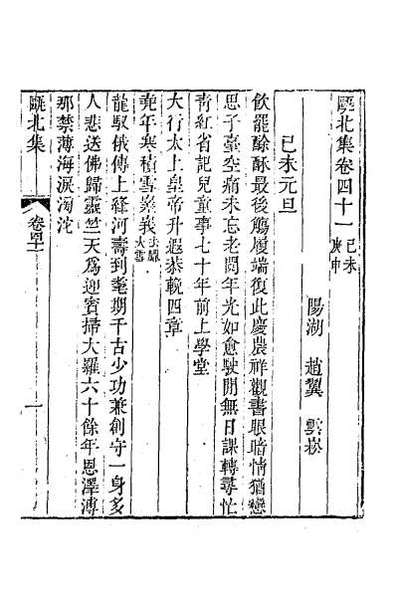 甌北集卷四十一 己未 庚申
陽湖 趙翼 雲崧
己未元旦
飲罷酴酥最後觴履端復此慶農祥觀書眼暗情猶戀
思子臺空痛未忘老閱年光如愈駛閒無日課轉尋忙
青紅省記兒童事七十年前上學堂
大行太上皇帝升遐恭輓四章
堯年寒積雪峩峩 去臘大雪
龍馭俄傳上絳河壽到耄期千古少功兼創守一身多
人悲送佛歸靈竺天爲迎賓掃大羅六十餘年恩澤溥
那禁薄海淚滂沱
甌北集
卷四十一
一